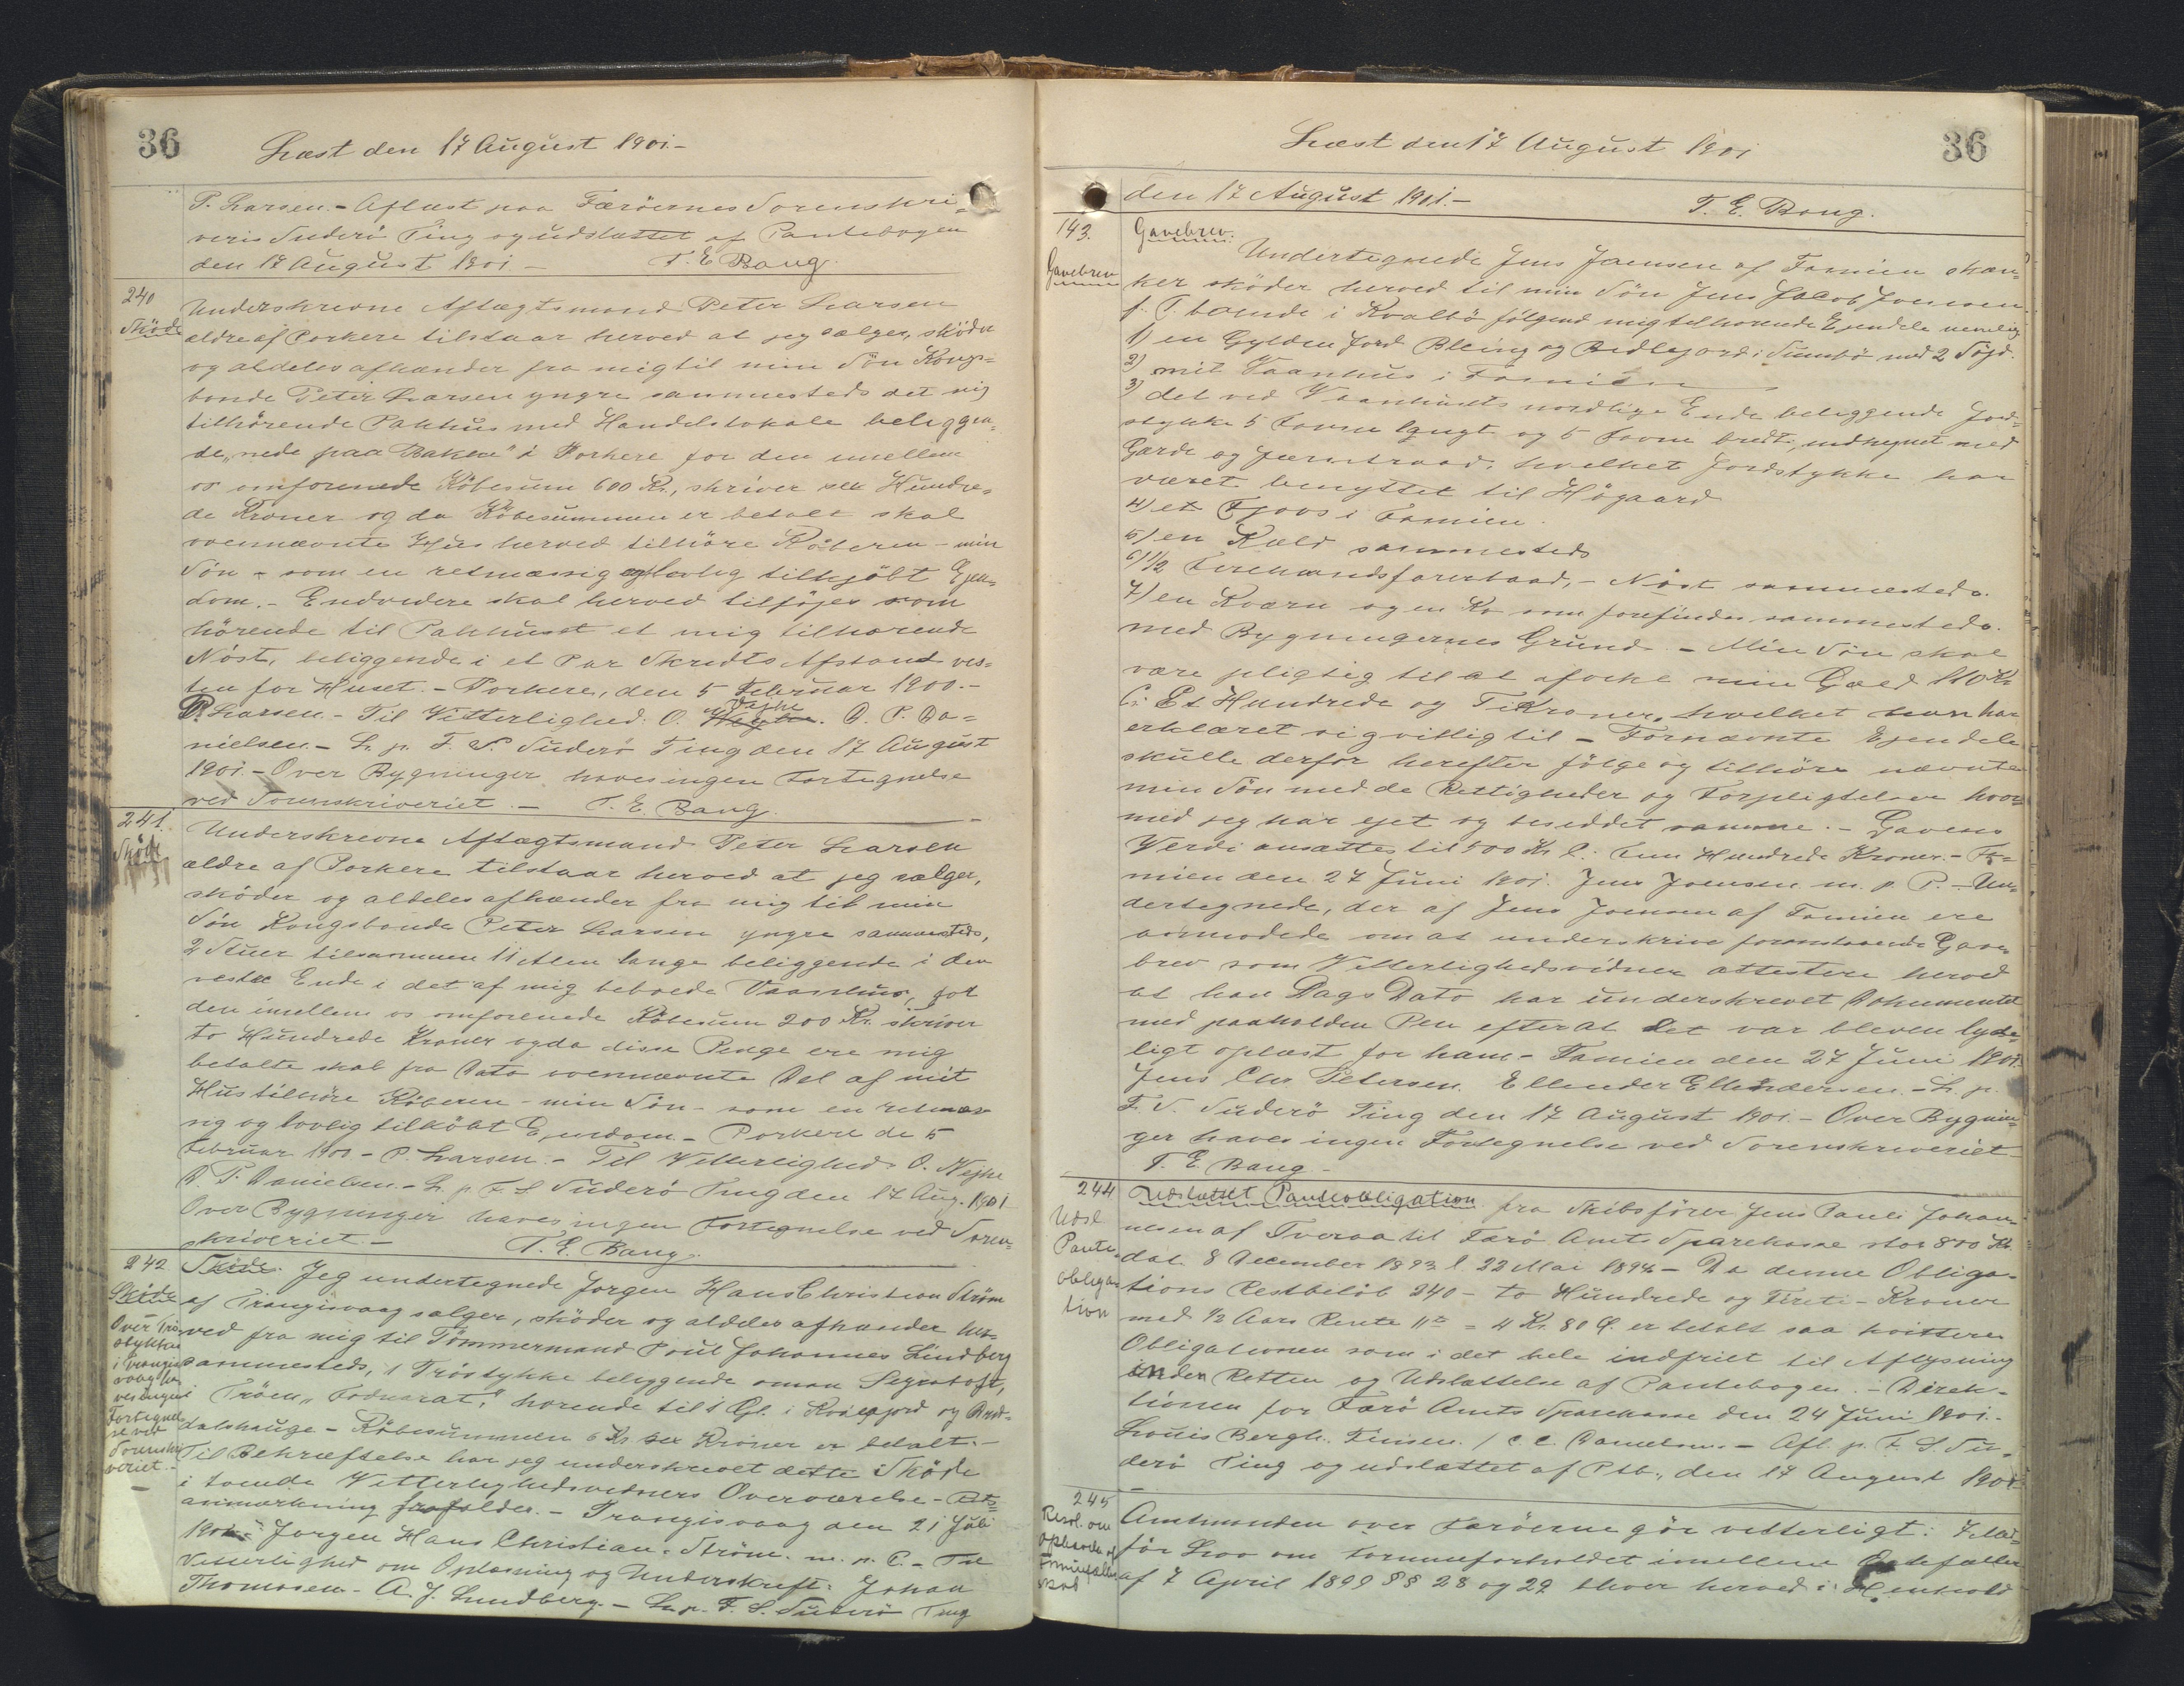 36
Læst den 17 August 1901.-
P. Larsen. - Aflæst paa Færöernes Sorenskri=
veris Suderö Ting og udslættet af Pantebogen
den 17 August 1901 - T. E. Bang.
240
Skøde
Underskrevne Aftægtsmand Peter Larsen
ældre af Porkere tilstaar herved at jeg sælger, skøder
og aldeles afhænder fra mig til min Sön Kongs=
bonde Peter Larsen yngre sammesteds det mig
tilhörende Pakhus med Handelslokale beliggen=
de "nede paa Bakken" i Porkere for den imellem
os omforenede Köbesum 600 Kr., skriver sex Hundre=
de Kroner og da Köbesummen er betalt skal
ovennævnte Hus herved tilhöre Köberen - min
Sön - som en retmæssig og lovlig tilkjöbt Ejen=
dom. - Endvidere skal herved tilföjes som
hörende til Pakhuset et mig tilhörende
Nöst, beliggende i et Par Skredts Afstand ves=
ten for Huset. - Porkere, den 5 Februar 1900.-
P. Larsen. - Til Vitterlighed: O. D. P. Da=
nielsen. - L. p. F. S. Suderö Ting den 17 August
1901. - Over Bygninger haves ingen Fortegnelse
ved Sorenskriveriet. - T. E. Bang.
241.
Skøde
Underskrevne Aftægtsmand Peter Larsen
ældre af Porkere tilstaar herved at jeg sælger,
sköder og aldeles afhænder fra mig til min
Sön Kongsbonde Peter Larsen yngre sammesteds,
2 Stuer tilsammen 11 Alen lange beliggende i den
vestre Ende i det af mig beboede Vaanhus, for
den imellem os omforenede Köbesum 200 Kr. skriver
to Hundrede Kroner og da disse Penge ere mig
betalte skal fra Dato ovennævnte Del af mit
Hus tilhöre Köberen - min Sön - som en retmæs
sig og lovlig tilköbt Ejendom. - Porkere de 5
Februar 1900 - P. Larsen. - Til Vitterlighed: O. Nejhe
D. P. Danielsen. - L. p. F. S. Suderö Ting den 17 Aug. 1901
Over Bygninger haves ingen Fortegnelse ved Soren=
skriveriet. - T. E. Bang.
242
Skøde
Over Trö
stykker
i Trangis
vaag ha
ves ingen
Fortegnel
se ved
Sorenskri
veriet. -
Skøde. Jeg undertegnede Jørgen Hans Christian Ström
af Trangisvaag sælger, sköder og aldeles afhænder her=
ved fra mig til Tömmermand Poul Johannes Lindberg
sammesteds, 1 Tröstykke beliggende oman
i Tröen hörende til 1 Gl. i
dalshauge - Köbesummen 6 Kr. sex Kroner er betalt. -
Til Bekræftelse har jeg underskrevet dette Sköde
i tvende Vitterlighedsvidners Overværelse - Rets=
anmærkning frafalder. - Trangisvaag den 21 Juli
1901. Jørgen Hans Christian Ström. m. p. P. - Til
Vitterlighed om Oplæsning og Underskrift: Johan
Thomasen. A. J. Lundberg. - L. p. F. S. Suderö Ting
Læst den 17 August 1901
36
den 17 August 1901. - T. E. Bang.
143.
Gavebrev
Gavebrev.
Undertegnede Jens Joensen af Famien skæn=
ker sköder herved til min Sön Jens Jacob Joensen
f. T. boende i Kvalbö fölgend mig tilhorende Ejendele nemlig
1) en Gylden Jord og i Sumbö med 2
2) mit Vaanhus i Famien
3) det ved Vaanhusets nordlige Ende beliggende Jord=
stykke 5 Favne langt og 5 Favne bredt, indhegnet med
Gærde og Jærntraad, hvilket Jordstykke har
været benyttet til Högaard
4) et Fjoos i Famien.
5) en Kæld sammesteds
6) 1/2 Firemandsfarerbaad, - Nöst sammesteds.
7) en Kværn og en Ko som forefindes sammesteds.
med Bygningernes Grund. - Min Sön skal
være pligtig til at afvikl min Gæld 110 Kr
l: Et Hundrede og Ti Kroner, hvilket han har
erklæret sig villig til - Fornævnte Ejendele
skulle derfor herefter fölge og tilhöre nævnte
min Sön med de Rettigheder og Forpligtelser hvor=
med jeg har ejet og besiddet samme. - Gavens
Verdi ansættes til 500 Kr l: Fem Hundrede Kroner. - Fa=
mien den 27 Juni 1901. Jens Joensen m. p. P. - Un=
dertegnede, der af Jens Joensen af Famien ere
anmodede om at underskrive foranstaaende Gave=
brev som Vitterlighedsvidner attestere herved
at han Dags Dato har underskrevet Dokumentet
med paaholden Pen efter at det var bleven lyde=
ligt oplæst for ham. - Famien den 27 Juni 1901.
Jens Chr. Petersen. Ellender Ellendersen. - L. p.
F. S. Suderö Ting den 17 August 1901. - Over Bygnin=
ger haves ingen Fortegnelse ved Sorenskriveriet
T. E. Bang -
244
Udsl
Pante=
obliga=
tion
Udslettet Panteobligation fra Skibsförer Jens Pauli Johan=
nesen af Tveraa til Færö Amts Sparekasse stor 800 Kr.
dat. 8 December 1893 l. 22 Mai 1894 - Da denne Obliga=
tions Restbelöb 240 - to Hundrede og Fireti - Kroner
med 1/2 Aars Rente = 4 Kr. 80 Ø. er betalt saa kvitteres
Obligationen som i det hele indfriet til Aflysning
inden Retten og Udslættelse af Pantebogen. - Direk=
tionen for Færö Amts Sparekasse den 24 Juni 1901. -
Louis Bergh. Finsen. / C. C. Danielsen. - Afl. p. F. S. Su=
derö Ting og udslættet af Ptb., den 17 August 1901
245
Resol. om
Ophævelse af
Formuefælles
skab
Amtmanden over Færöerne gör vitterligt: Ifölge
Lov om Formueforholdet imellem Ægtefæller
af 7 April 1899 §§ 28 og 29 bliver herved i Henhold